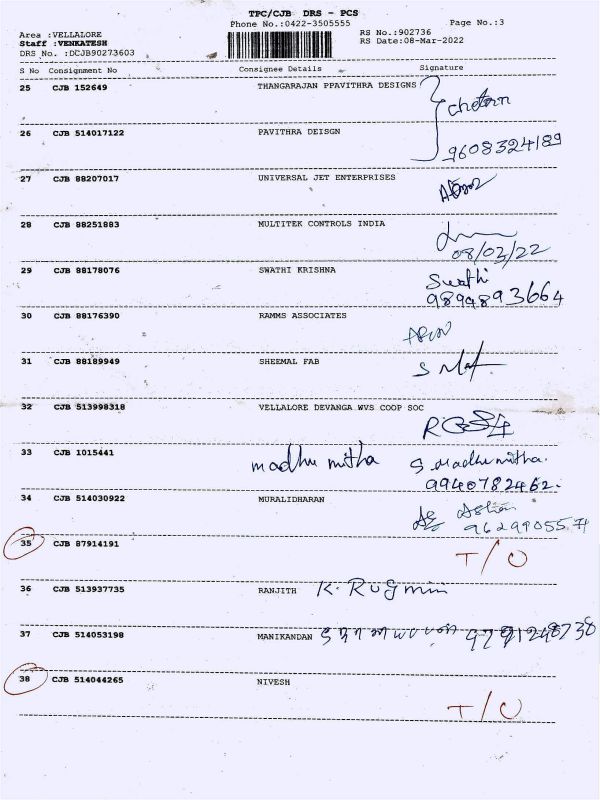 TPC/CJB DRS - PCS
Phone No.:0422-3505555 Page No.:3
Area :VELLALORE RS No.:902736
Staff :VENKATESH RS Date:08-Mar-2022
DRS No. :DCJB90273603
S No Consignment No Consignee Details Signature
25 CJB 152649 THANGARAJAN PPAVITHRA DESIGNS
26 CJB 514017122 PAVITHRA DEISGN
9608324189
27 CJB 88207017 UNIVERSAL JET ENTERPRISES
28 CJB 88251883 MULTITEK CONTROLS INDIA
08/03/22
29 CJB 88178076 SWATHI KRISHNA Swathi
9894893664
30 CJB 88176390 RAMMS ASSOCIATES
31 CJB 88189949 SHEEMAL FAB
32 CJB 513998318 VELLALORE DEVANGA WVS COOP SOC
33 CJB 1015441 madhu mitha S. Madhu mitha.
9940782462.
34 CJB 514030922 MURALIDHARAN
35 CJB 87914191 T/O
36 CJB 513937735 RANJITH K. Rugmini
37 CJB 514053198 MANIKANDAN 9791248738
38 CJB 514044265 NIVESH
T/O